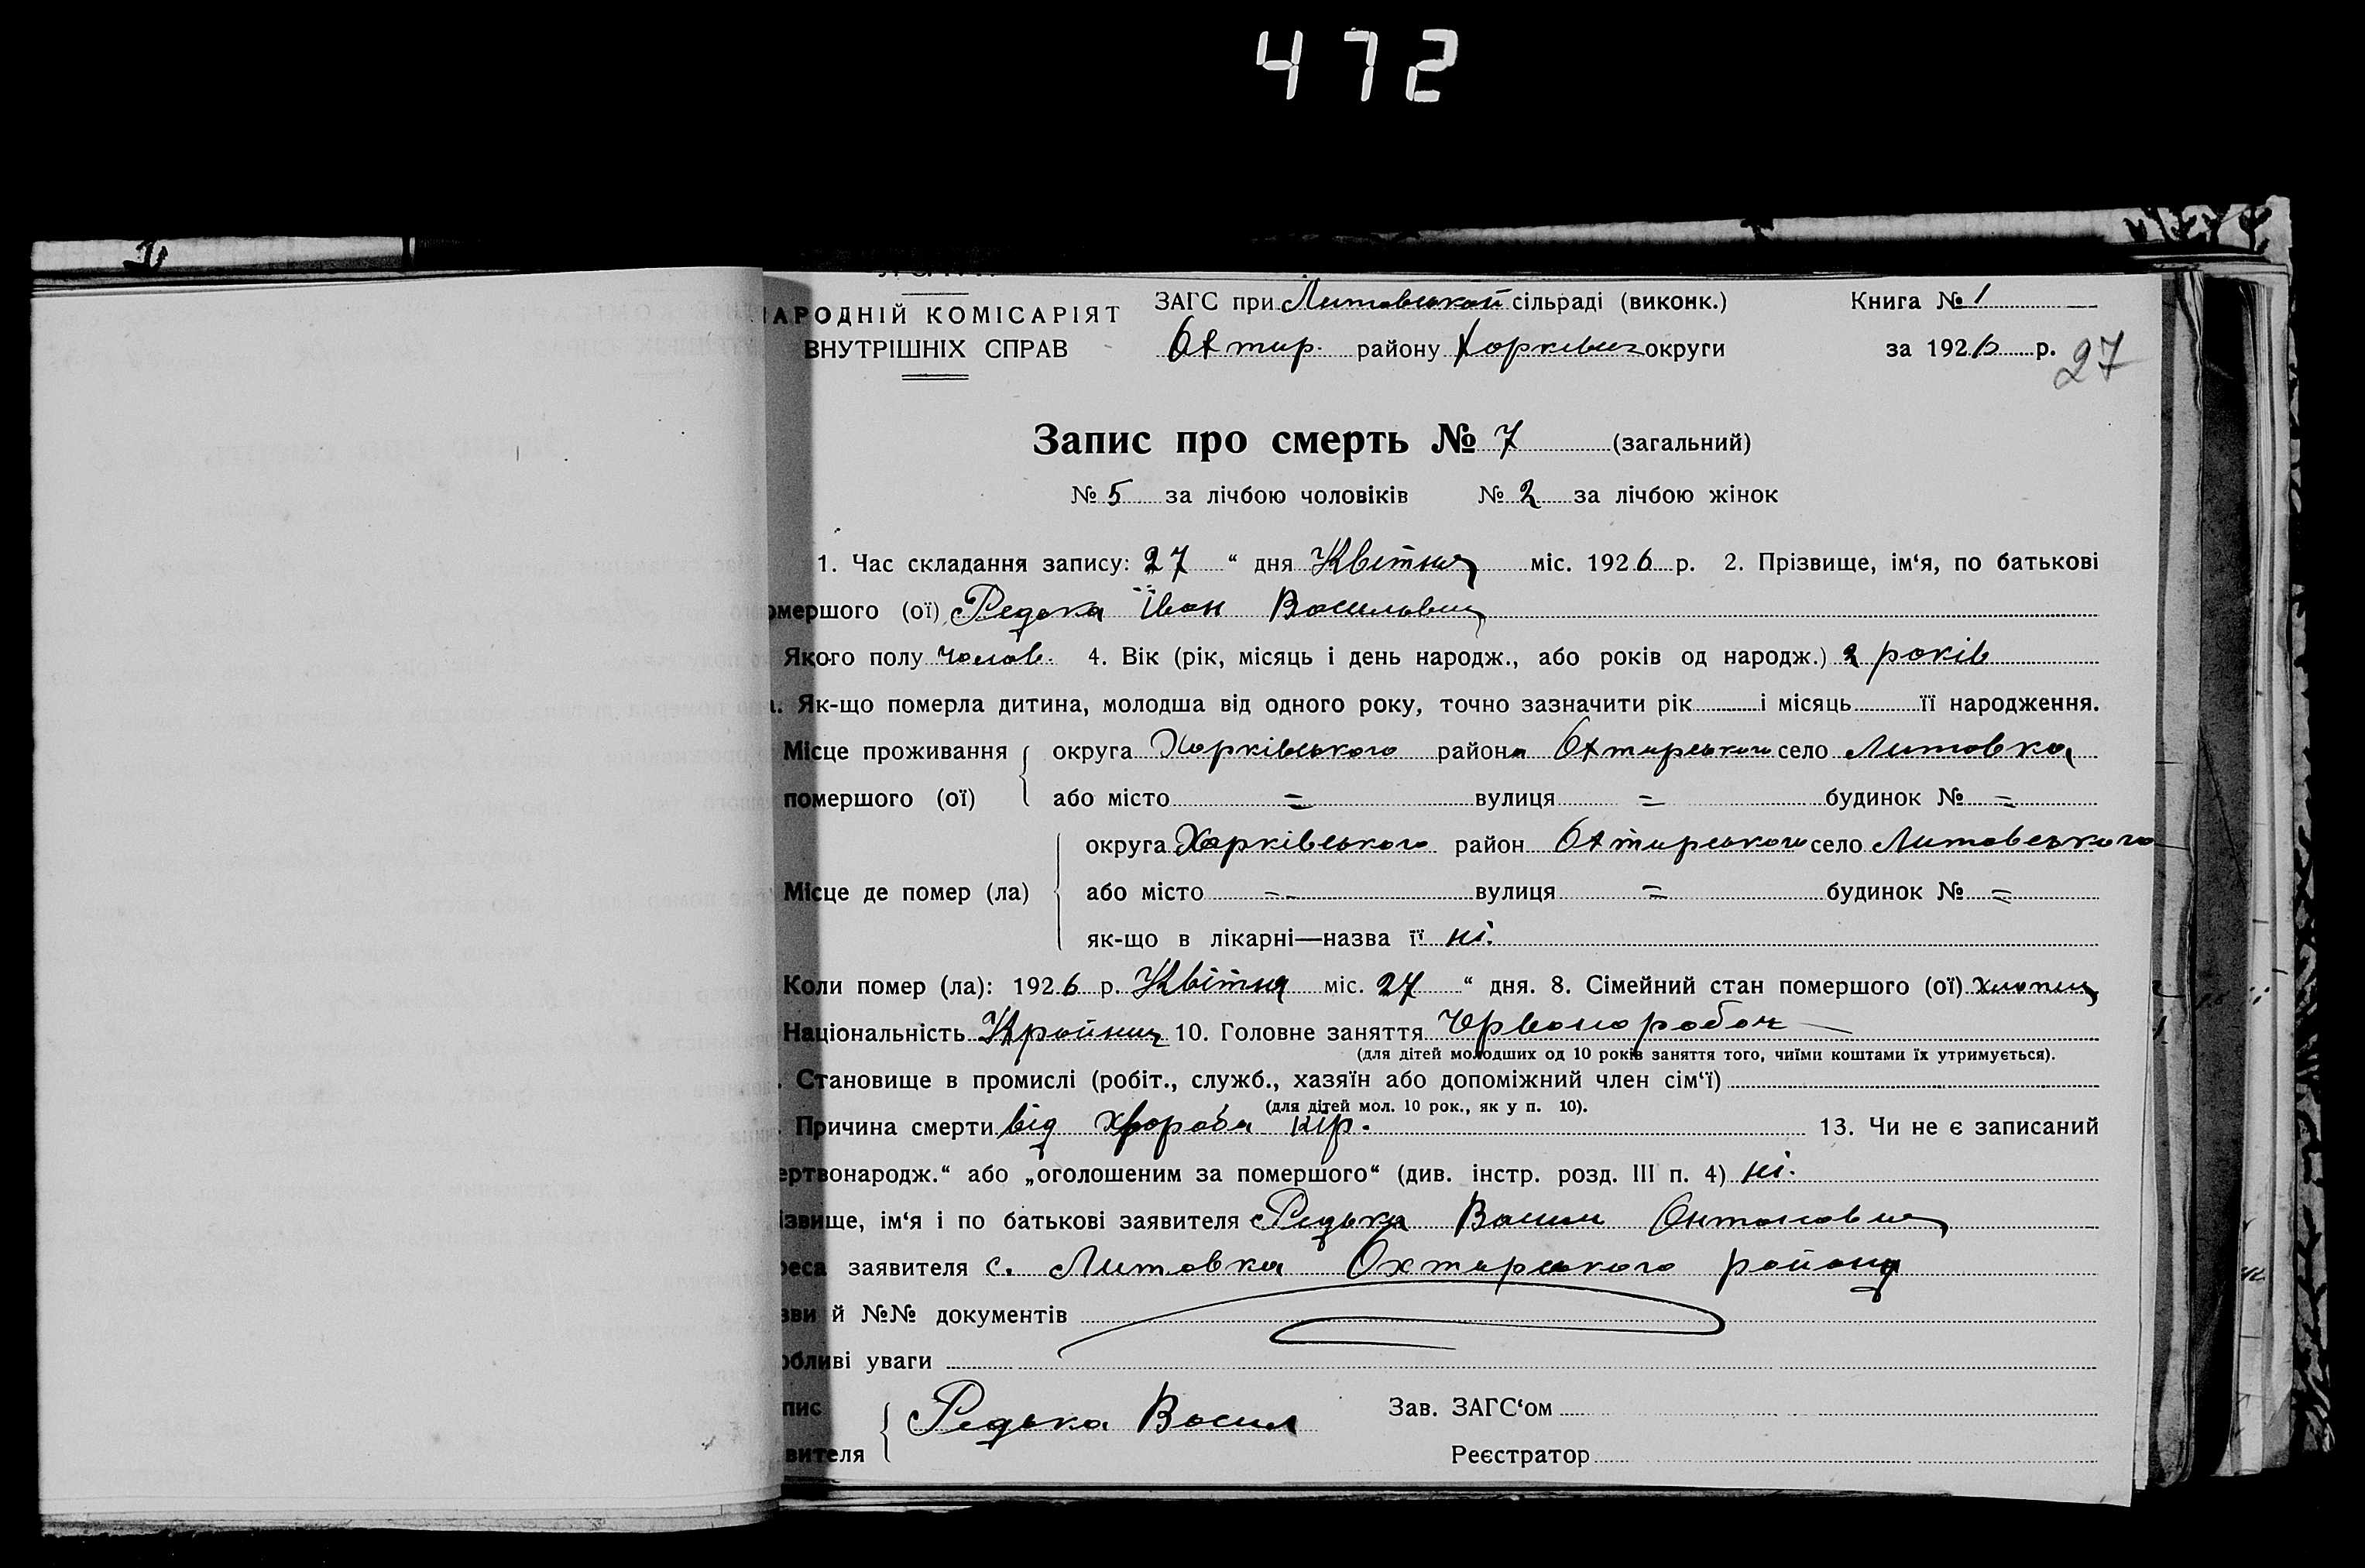 472
НАРОДНІЙ КОМІСАРІЯТ
ВНУТРІШНІХ СПРАВ
ЗАГС при Литовській сільраді (виконк.)
Охтир. району Харківськ округи
Книга № 1
за 1926 р.
27
Запис про смерть № 7 (загальний)
№ 5 за лічбою чоловіків № 2 за лічбою жінок
1. Час складання запису: 27 “ дня Квітня міс. 1926 р. 2. Прізвище, ім‘я, по батькові
омершого (ої) Редька Іван Васильович
Якого полу чолов. 4. Вік (рік, місяць і день народж., або років од народж.) 2 років
Як-що померла дитина, молодша від одного року, точно зазначити рік і місяць її народження.
Місце проживання округа Харківського района Охтирського село Литовка
помершого (ої) або місто = вулиця = будинок № =
округа Харківського район Охтирського село Литовського
Місце де помер (ла) або місто = вулиця = будинок № =
як-що в лікарні—назва її ні.
Коли помер (ла): 1926 р. Квітня міс. 27 “ дня. 8. Сімейний стан помершого (ої) хлопец
Національність 10. Головне заняття
(для дітей молодших од 10 років заняття того, чиїми коштами їх утримується).
Становище в промислі (робіт., служб., хазяїн або допоміжний член сім‘ї)
(для дітей мол. 10 рок., як у п. 10).
Причина смерти від хвороби кір. 13. Чи не є записаний
ертвонародж.“ або „оголошеним за помершого“ (див. інстр. розд. III п. 4) ні.
ізвище, ім‘я і по батькові заявителя Редька Васил Онтонович
реса заявителя с. Литовка Охтирського району
зви й №№ документів
обливі уваги
пис Редька Васил Зав. ЗАГС‘ом
вителя Реєстратор